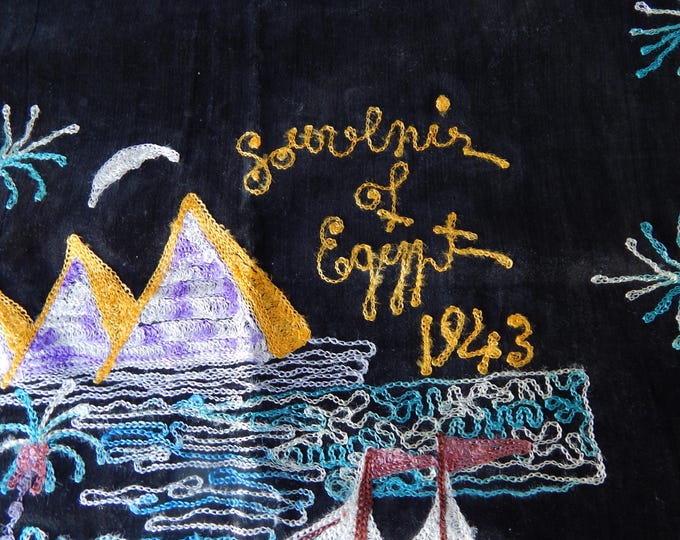 Souvenir
of
Egypt
1943